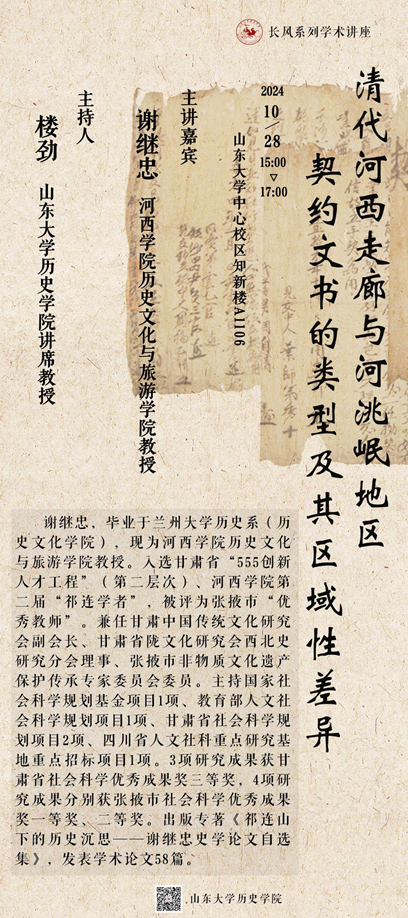 长风系列学术讲座
清代河西走廊与河洮岷地区
契约文书的类型及其区域性差异
2024
10/28
15:00
17:00
山东大学中心校区知新楼A1106
主讲嘉宾
谢继忠 河西学院历史文化与旅游学院教授
主持人
楼劲 山东大学历史学院讲席教授
谢继忠，毕业于兰州大学历史系（历
史文化学院），现为河西学院历史文化
与旅游学院教授。入选甘肃省“555创新
人才工程”（第二层次）、河西学院第
二届“祁连学者”，被评为张掖市“优
秀教师”。兼任甘肃中国传统文化研究
会副会长、甘肃省陇文化研究会西北史
研究分会理事、张掖市非物质文化遗产
保护传承专家委员会委员。主持国家社
会科学规划基金项目1项、教育部人文社
会科学规划项目1项、甘肃省社会科学规
划项目2项、四川省人文社科重点研究基
地重点招标项目1项。3项研究成果获甘
肃省社会科学优秀成果奖三等奖，4项研
究成果分别获张掖市社会科学优秀成果
奖一等奖、二等奖。出版专著《祁连山
下的历史沉思——谢继忠史学论文自选
集》，发表学术论文58篇。
山东大学历史学院